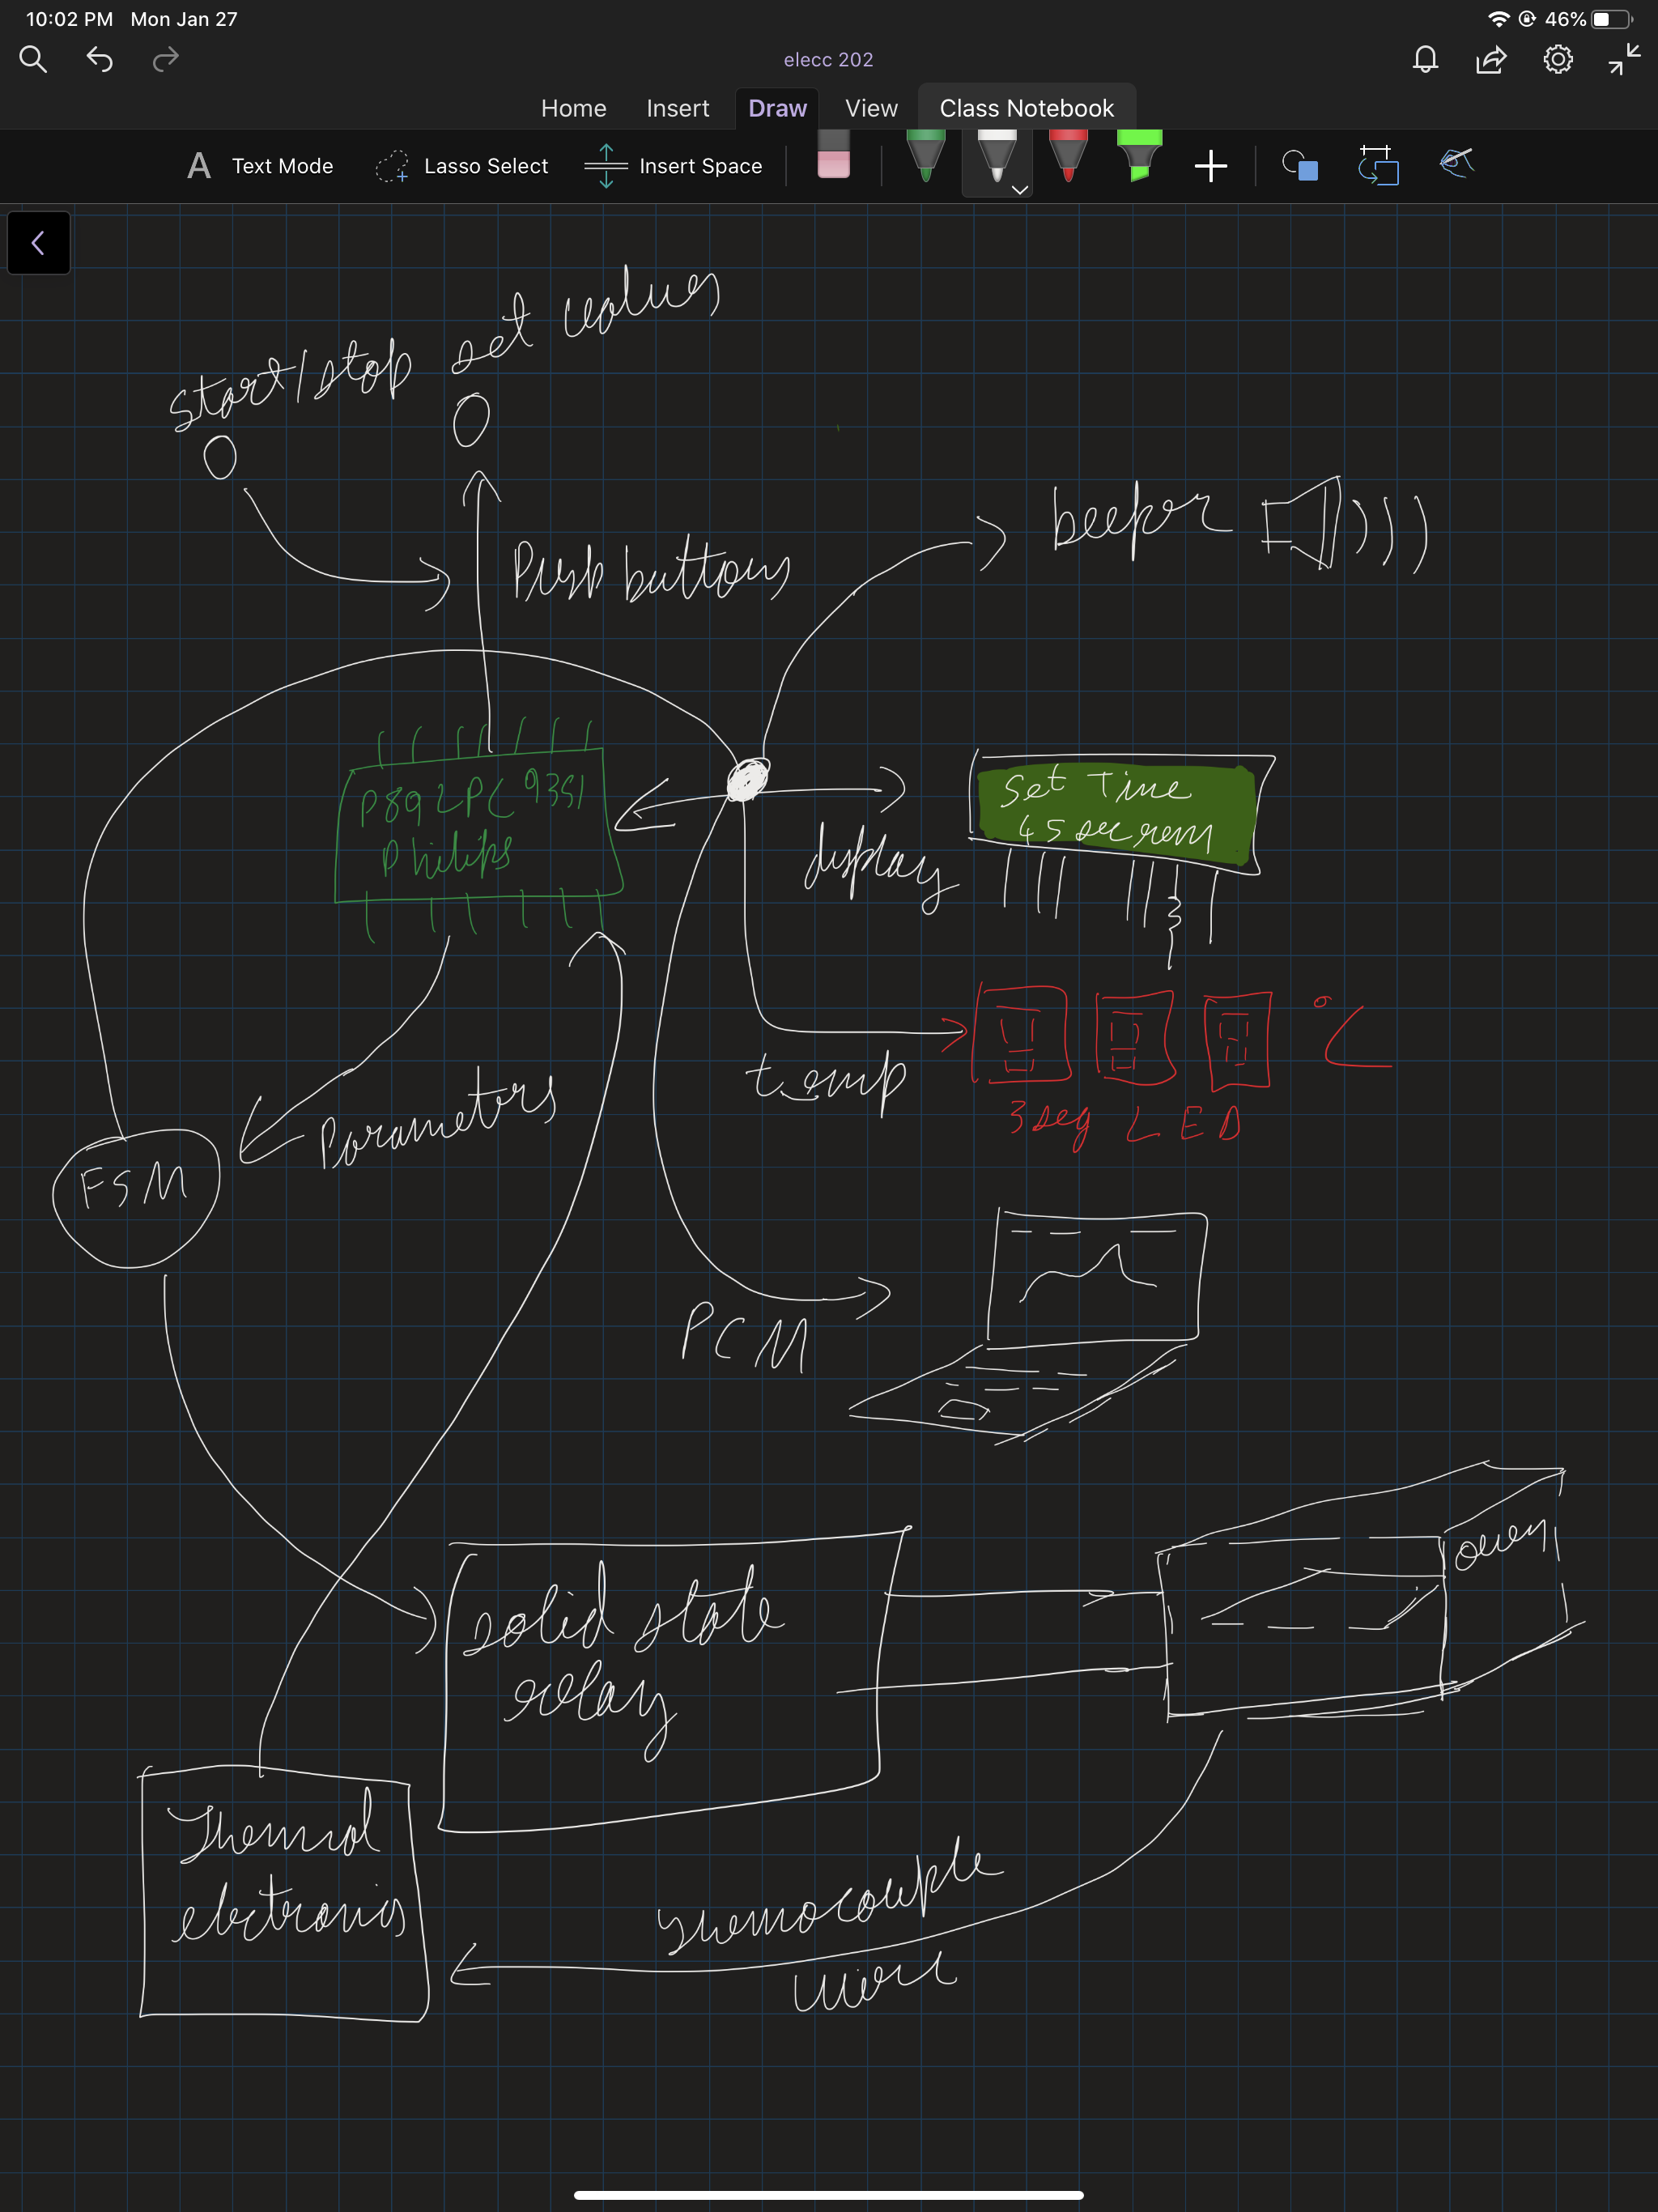 10:02 PM Mon Jan 27
46%
elecc 202
Home Insert Draw View Class Notebook
A Text Mode Lasso Select Insert Space
start/stop set values
Push buttons
beeper
P89LPC 9351
Philips
display
Set Time
45 sec rem
temp
°C
3 seg LED
Parameters
FSM
PCM
oven
solid state
relay
Thermal
electronics
thermocouple
wire